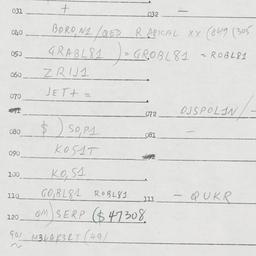 031 + 032 —
040 BORO,N1 /QED RADICAL XX (649 (305
050 GRABL81 ) = GROBL81 = ROBL81
060 ZRIJ1
070 JET+ =
072 OJSPOLIN/ -
080 $ ) SO,P1 081 —
090 KOS1T
100 KO,S1
110 GO,BL81 ROBL81 111 - QUKR
120 OM) SERP ($47308
901